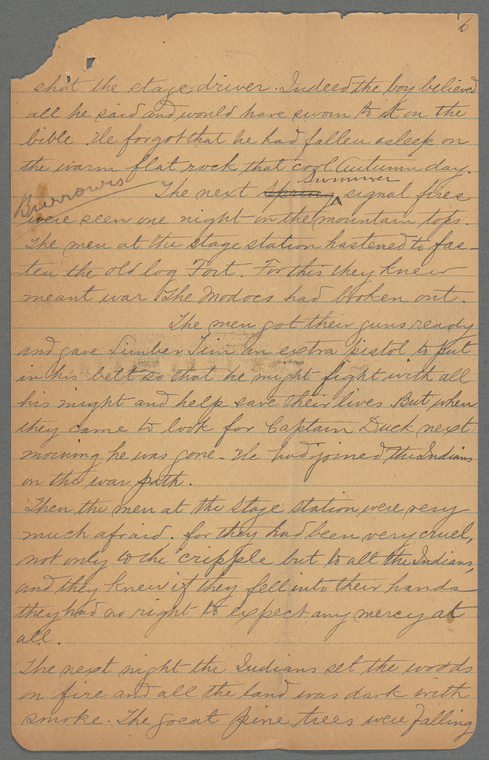 6
shot the stage driver. Indeed the boy believed
all he said and would have sworn to it on the
bible. He forgot that he had fallen asleep on
the warm flat rock that cool Autumn day.
Summer
Burrows The next Spring signal fires
were seen one night in the mountain tops.
The men at the stage station hastened to fas-
ten the old log Fort. For this they knew
meant war The Modocs had broken out.
The men got their guns ready
and gave Limber Tim an extra pistol to put
in his belt so that he might fight with all
his might and help save their lives. But when
they came to look for Captain Duck next
morning he was gone. He had joined the Indians
in the war path.
Then the men at the stage station were very
much afraid. for they had been very cruel,
not only to the cripple but to all the Indians,
and they knew if they fell into their hands
they had no right to expect any mercy at
all.
The next night the Indians set the woods
on fire and all the land was dark with
smoke. The great pine trees were falling